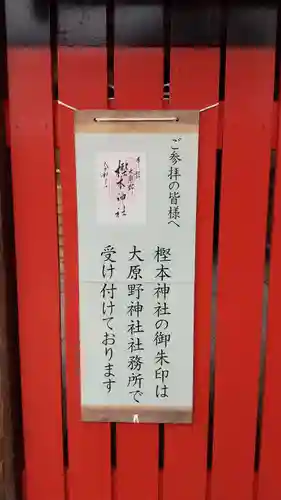 ご参拝の皆様へ
樫本神社の御朱印は
大原野神社社務所で
受け付けております
大原野
樫本神社